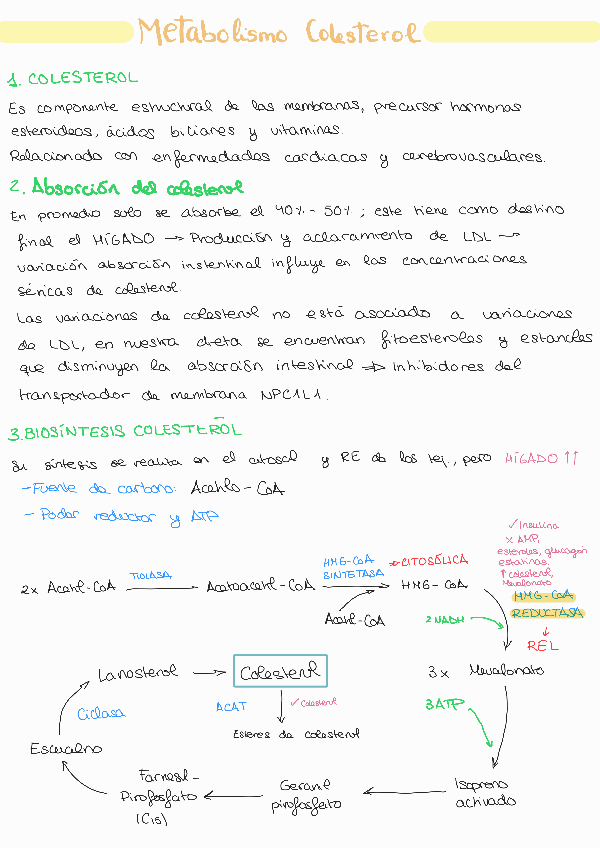 Metabolismo Colesterol
1. COLESTEROL
Es componente estructural de las membranas, precursor hormonas
esteroideos, ácidos biliares y vitaminas.
Relacionado con enfermedades cardiacas y cerebrovasculares.
2. Absorción del colesterol
En promedio solo se absorbe el 40% - 50% ; este tiene como destino
final el HÍGADO → Producción y aclaramiento de LDL →
variación absorción instentinal influye en las concentraciones
séricas de colesterol.
Las variaciones de colesterol no está asociado a variaciones
de LDL, en nuestra dieta se encuentran fitoesteroles y estanoles
que disminuyen la absorción intestinal ⇒ Inhibidores del
transportador de membrana NPC1L1.
3. BIOSÍNTESIS COLESTEROL
Su síntesis se realiza en el citosol y RE de los tej., pero HÍGADO ↑↑
- Fuente de carbono: Acetilo - CoA
- Poder reductor y ATP
✓ Insulina
x AMP,
esteroles, glucagón
estatinas,
↑ colesterol,
Mevalonato
HMG-CoA
REDUCTASA
↓
REL
2x Acetil-CoA
TIOLASA
Acetoacetil-CoA
HMG-CoA
SINTETASA
→ CITOSÓLICA
HMG-CoA
Acetil-CoA
2 NADH
3x Mevalonato
Lanosterol → Colesterol
Ciclasa
ACAT
✓ Colesterol
3 ATP
Esteres de colesterol
Escualeno
Farnesil-
Pirofosfato
(C15)
Geranil
pirofosfato
Isopreno
activado